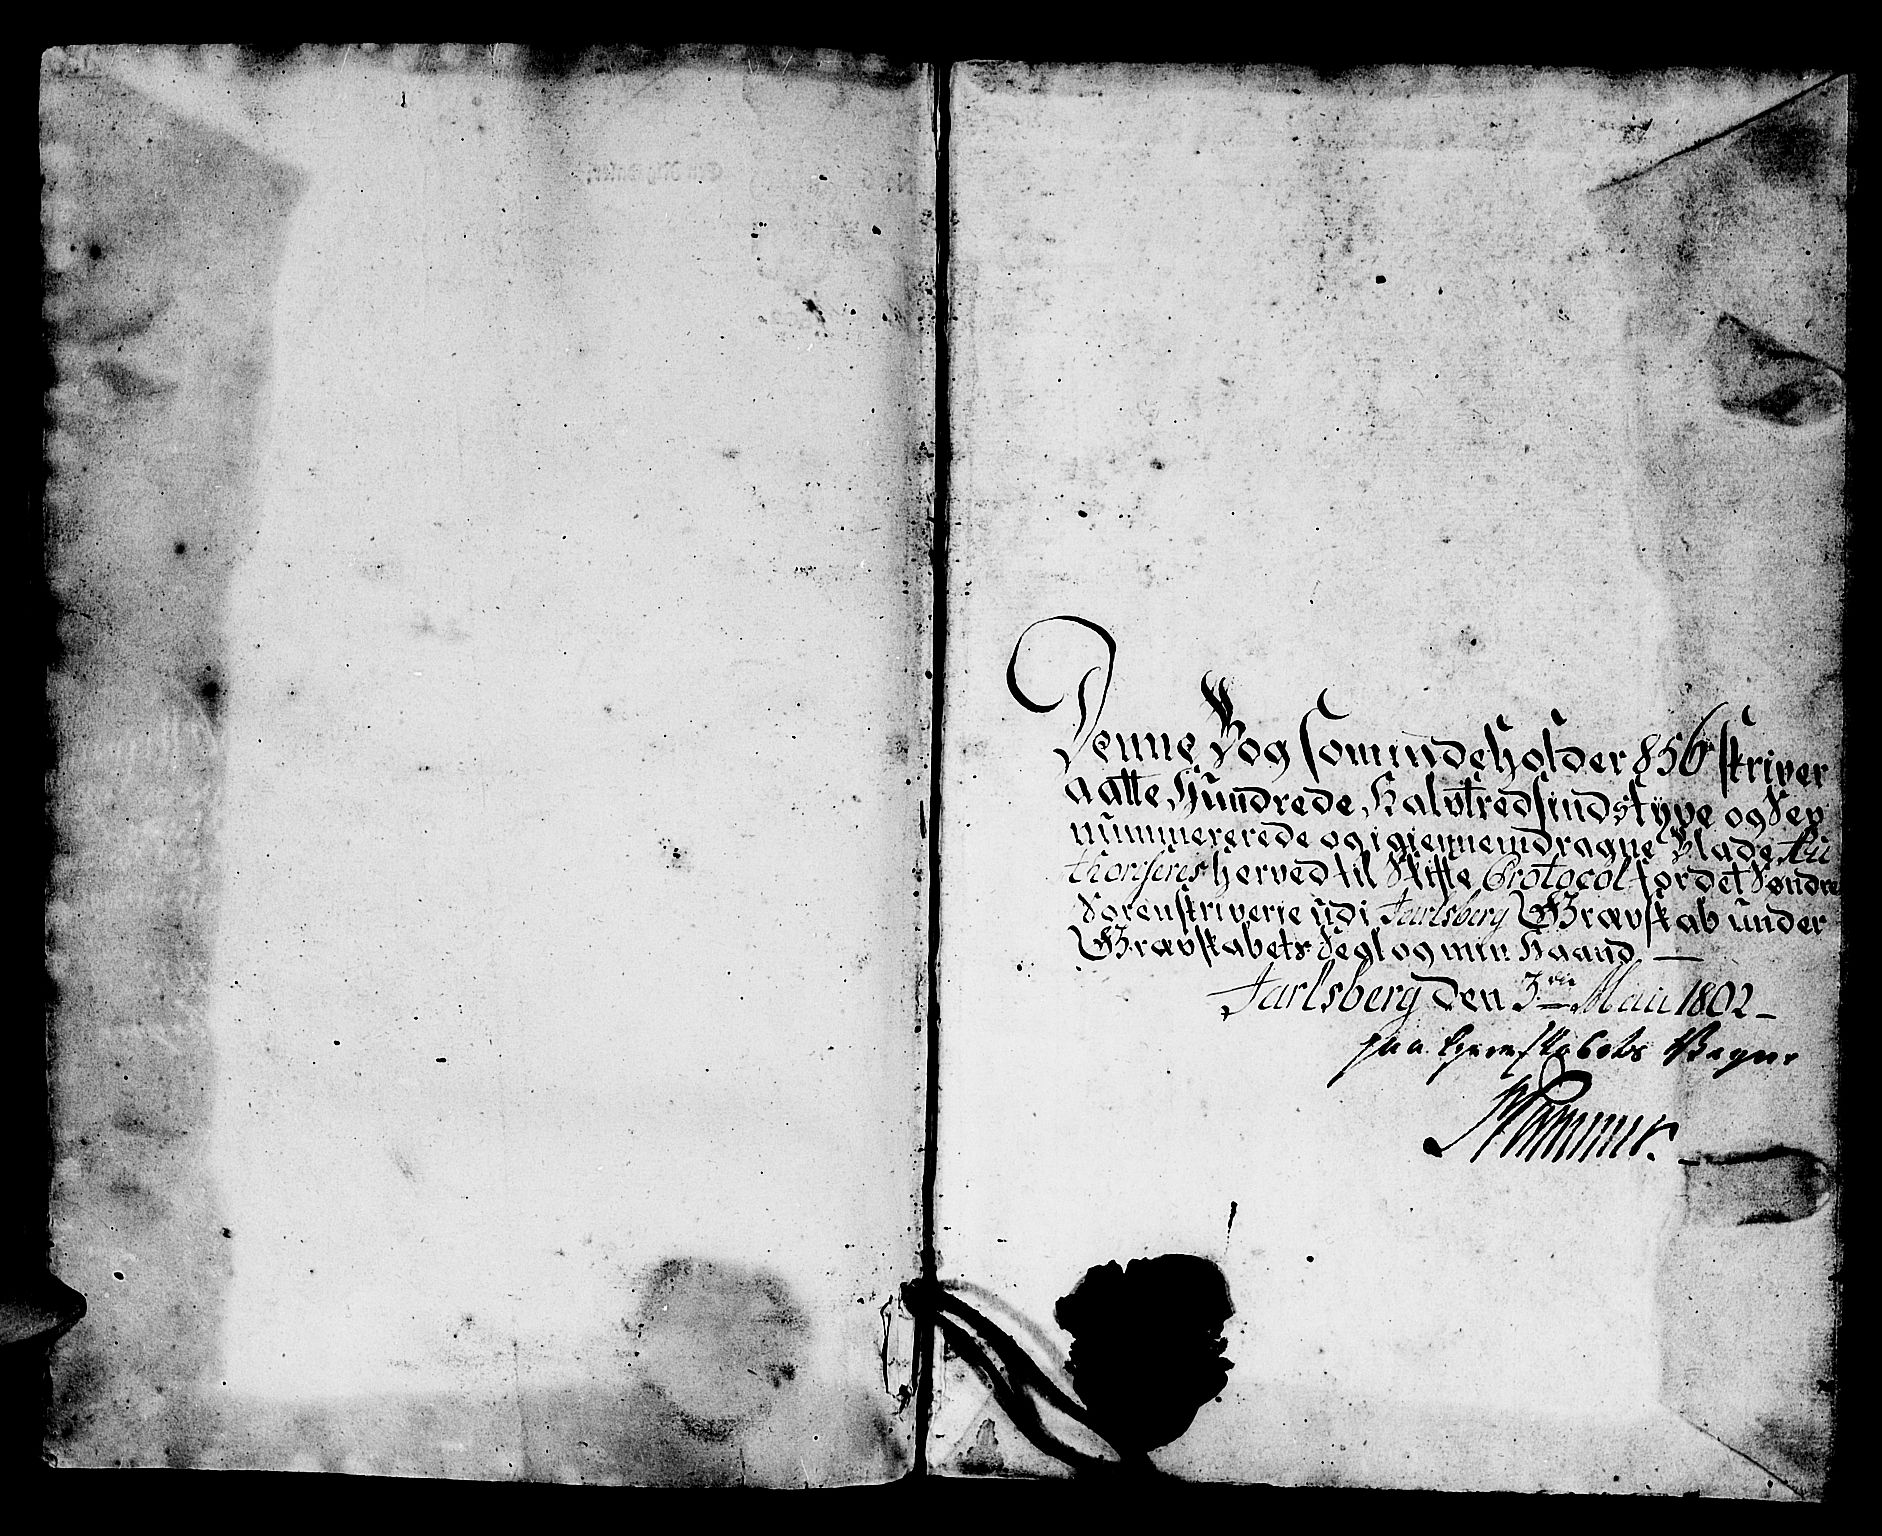 Denne Bog som indeholder 856 skriver
aatte Hundrede Halvtredsindstyve og Sex
nummererede og igiennemdragne Blade Au
thoriseres herved til Skifte Protocol for det Søndre
Sorenskriverie udi Jarlsberg Grævskab under
Grævskabets Segl og min Haand
Jarlsberg den 3die Maii 1802
paa Herreskabets Vegne